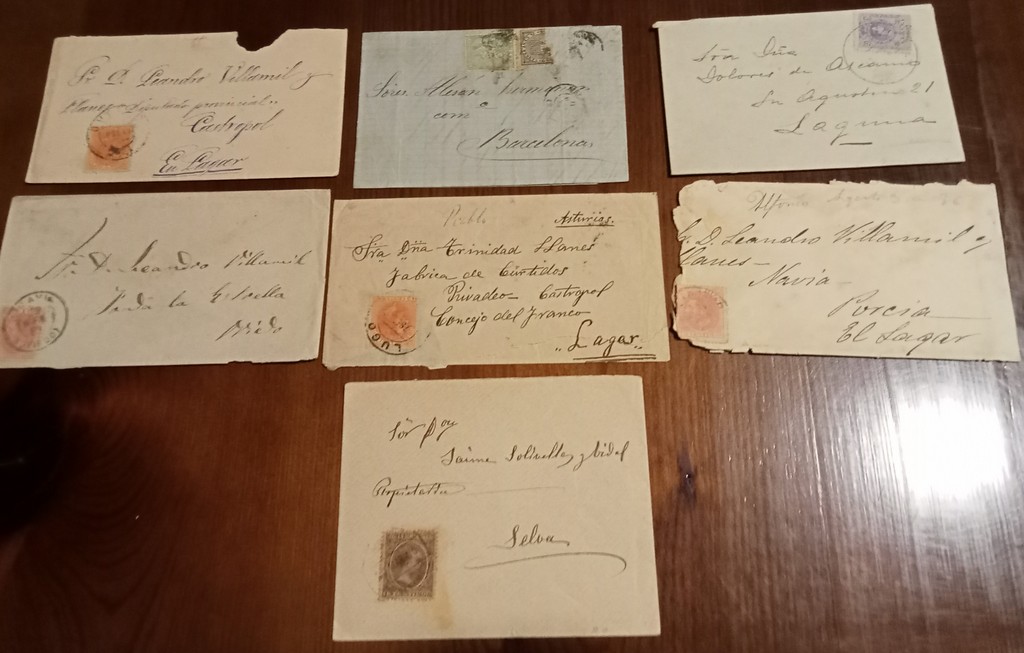 Sr D. Leandro Villamil y
Llanes Diputado provincial
Castropol
En Lagar
Sores
com
Barcelona
Sra Dña
Dolores de Ascanio
Sn Agustin 21
Laguna
Leandro Villamil
la Estrella
Oviedo
NAVIA
Asturias.
Sra Dña Trinidad Llanes
Fabrica de Curtidos
Rivadeo Castropol
Concejo del Franco
"Lagar"
LUGO
Alfonso
S. D. Leandro Villamil y
Llanes
Navia
Porcia
El Lagar
Sor Dn
Jaime Solivellas y Vidal
Propietario
Selva